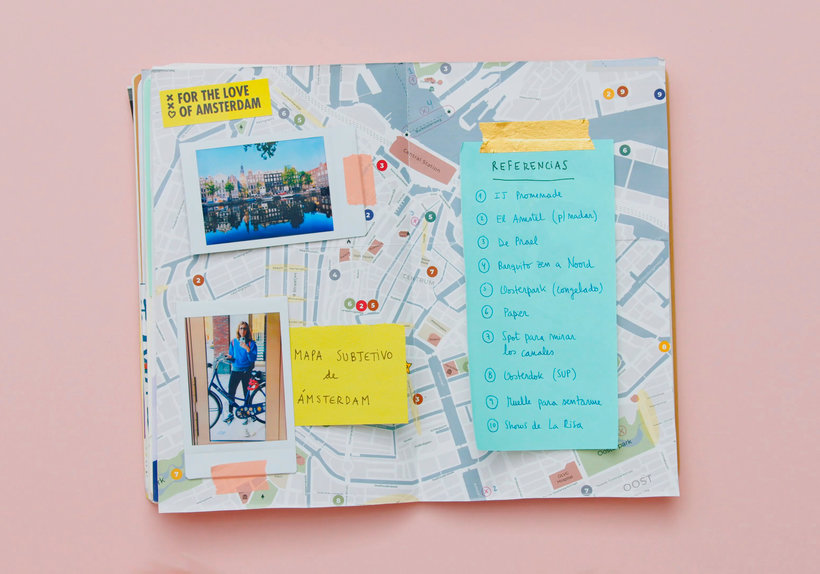 FOR THE LOVE
OF AMSTERDAM
MAPA SUBJETIVO
de
ÁMSTERDAM
Central Station
CENTRUM
REFERENCIAS
1 IJ Promenade
2 El Amstel (p/nadar)
3 De Prael
4 Barquito zen a Noord
5 Oosterpark (congelado)
6 Paper
7 Spot para mirar
los canales
8 Oosterdok (SUP)
9 Muelle para sentarme
10 Shows de La Risa
OLVG
Hospital
OOST